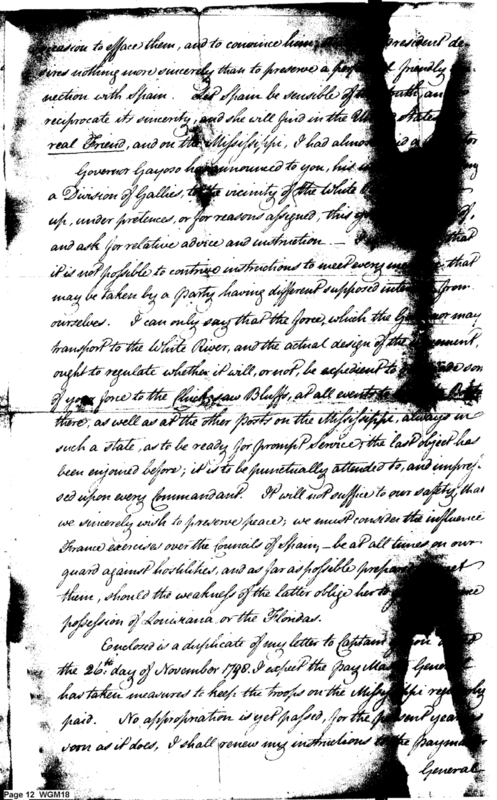 reason to efface them, and to convince him, President de-
sires nothing more sincerely than to preserve a friendly
nection with Spain. Let Spain be sensible of this and
reciprocate its sincerity, and she will find in the States
real Friend, and on the Mississippi, I had almost
Governor Gayoso has announced to you, his
a Division of Gallies, to the vicinity of the White
up, under pretences, or for reasons assigned, this
and ask for relative advice and instruction. — that
it is not possible to contrive instructions to meet every that
may be taken by a Party having different supposed from
ourselves. I can only say that the force, which the Governor may
transport to the White River, and the actual design of the
ought to regulate whether it will, or not, be expedient to
of your force to the Chickasaw Bluffs, at all events to
there, as well as at the other Posts on the Mississippi, always in
such a state, as to be ready for prompt Service, the last object has
been enjoined before; it is to be punctually attended to, and impres-
sed upon every Commandant. It will not suffice to our safety, that
we sincerely wish to preserve peace; we must consider the influence
France exercises over the Councils of Spain, — be at all times on our
guard against hostilities, and as far as possible
them, should the weakness of the latter oblige her to
possession of Louisiana, or the Floridas.
Enclosed is a duplicate of my letter to Captain
the 26th day of November 1798. I expect the Pay Master General
has taken measures to keep the troops on the Mississippi regularly
paid. No appropriation is yet passed, for the present year
soon as it does, I shall renew my instructions to the Paymaster
General
Page 12 WGM18